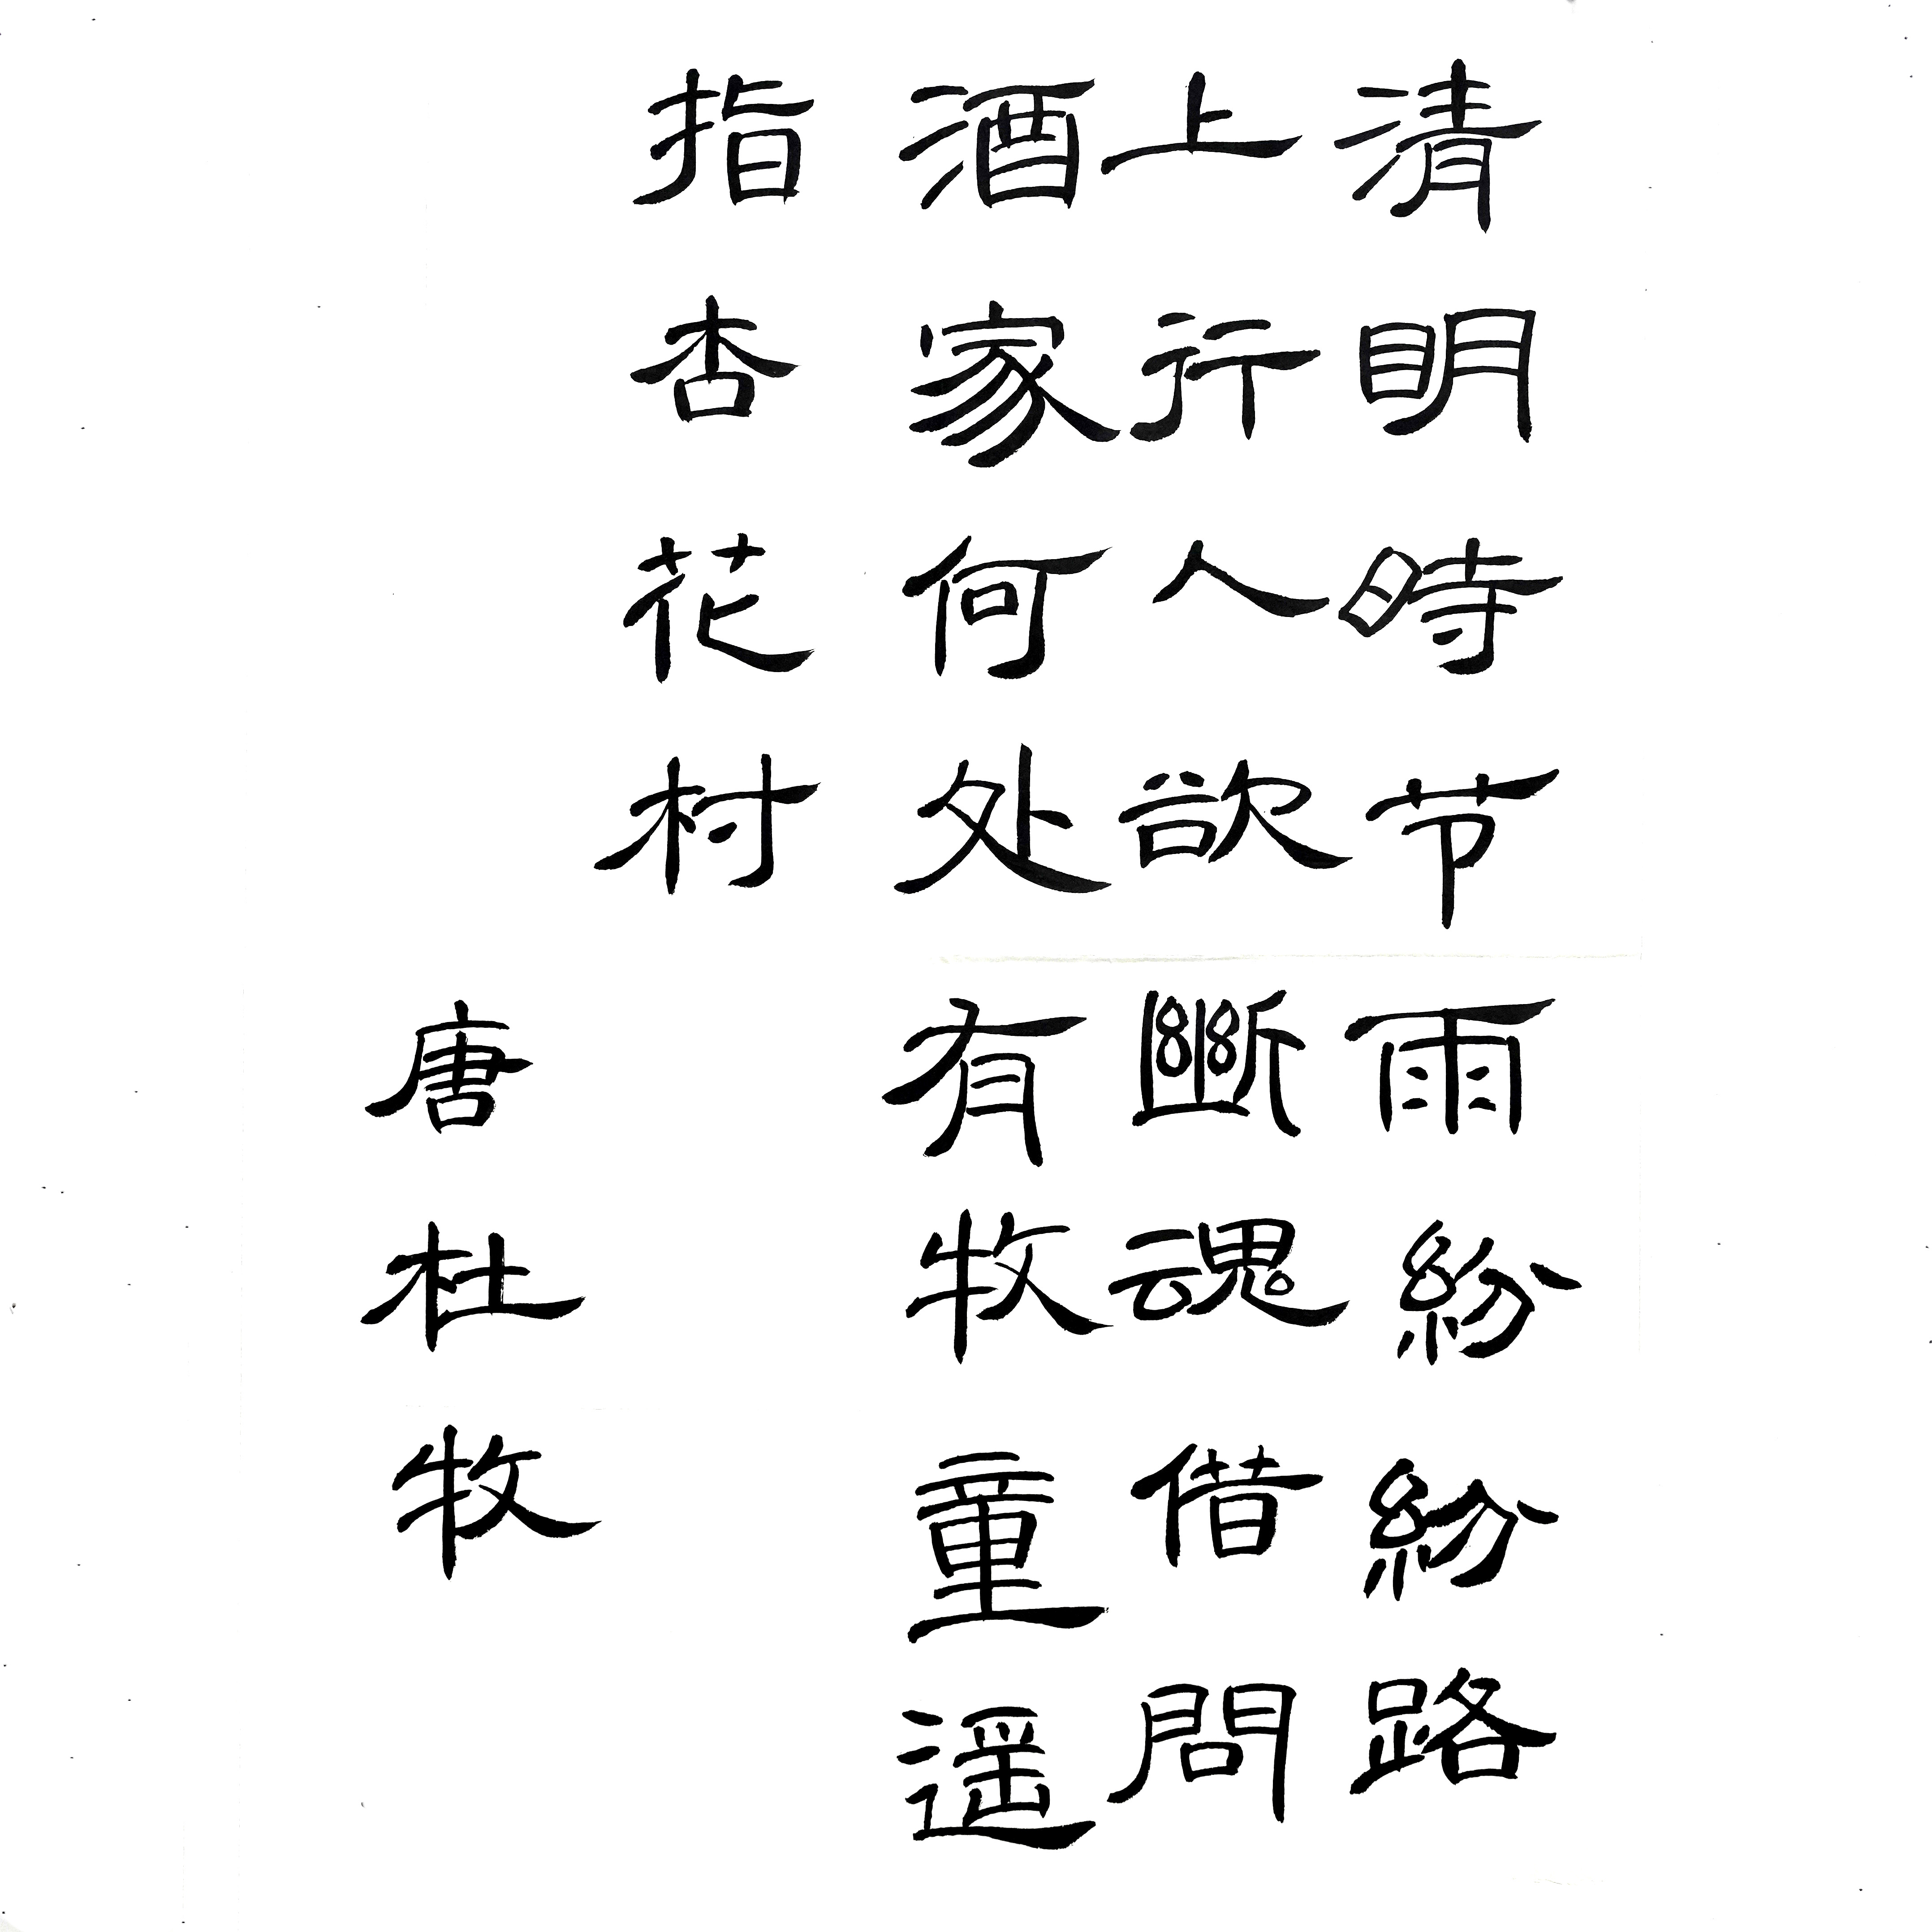 清明時节雨紛紛路
上行人欲斷魂借問
酒家何处有牧童遥
指杏花村
唐杜牧